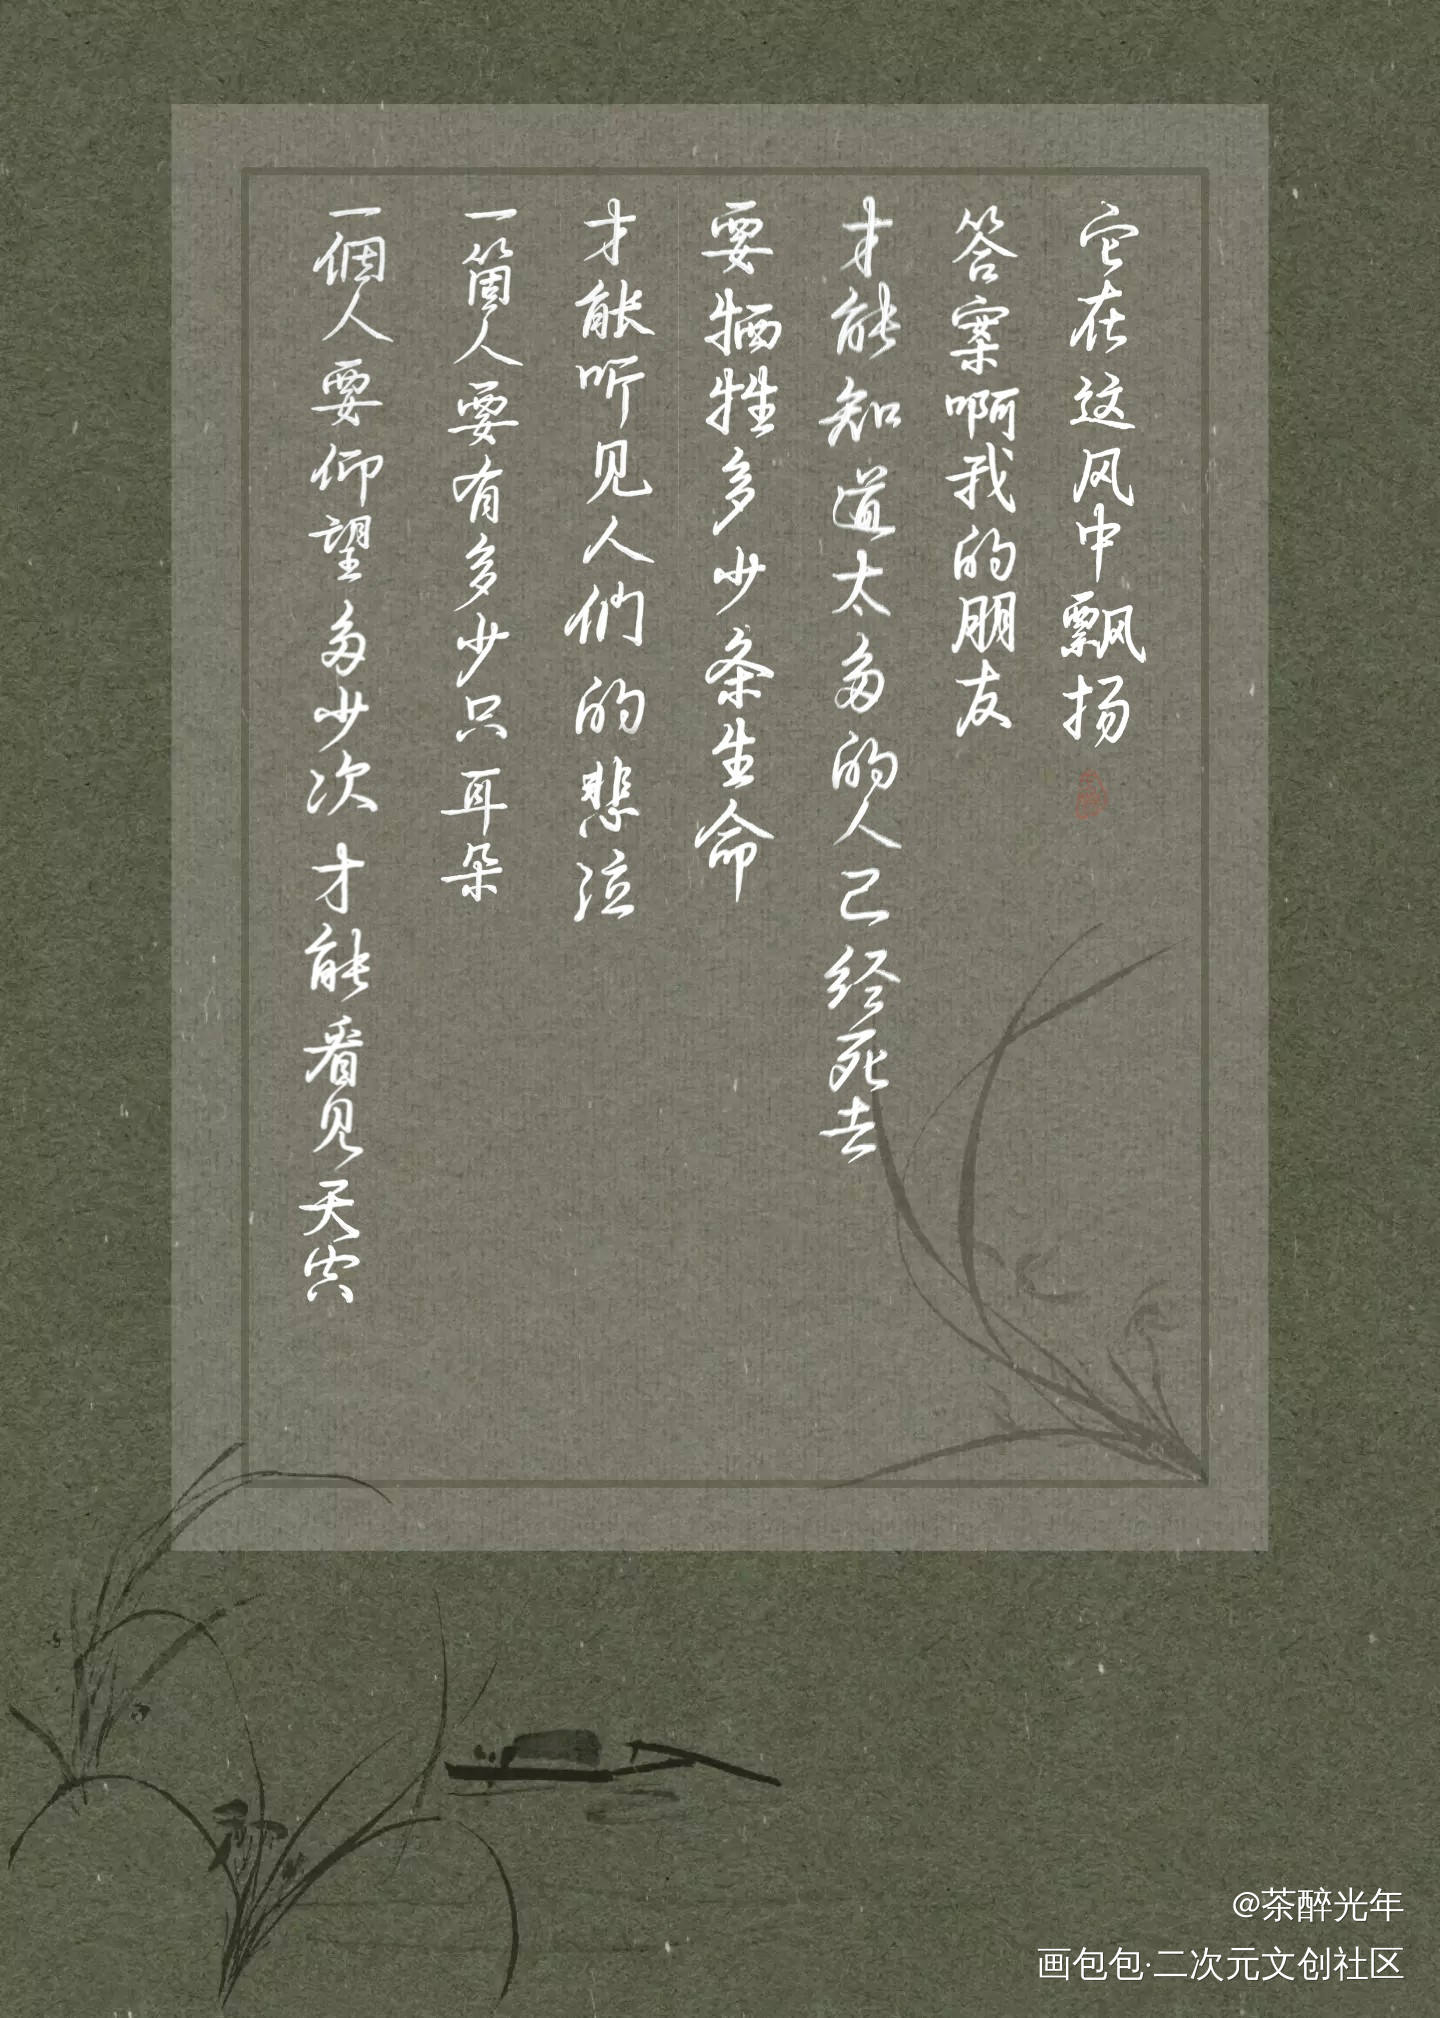 一個人要仰望多少次才能看见天空
一箇人要有多少只耳朵
才能听见人们的悲泣
要牺牲多少条生命
才能知道太多的人已经死去
答案啊我的朋友
它在这风中飘扬
@茶醉光年
画包包·二次元文创社区